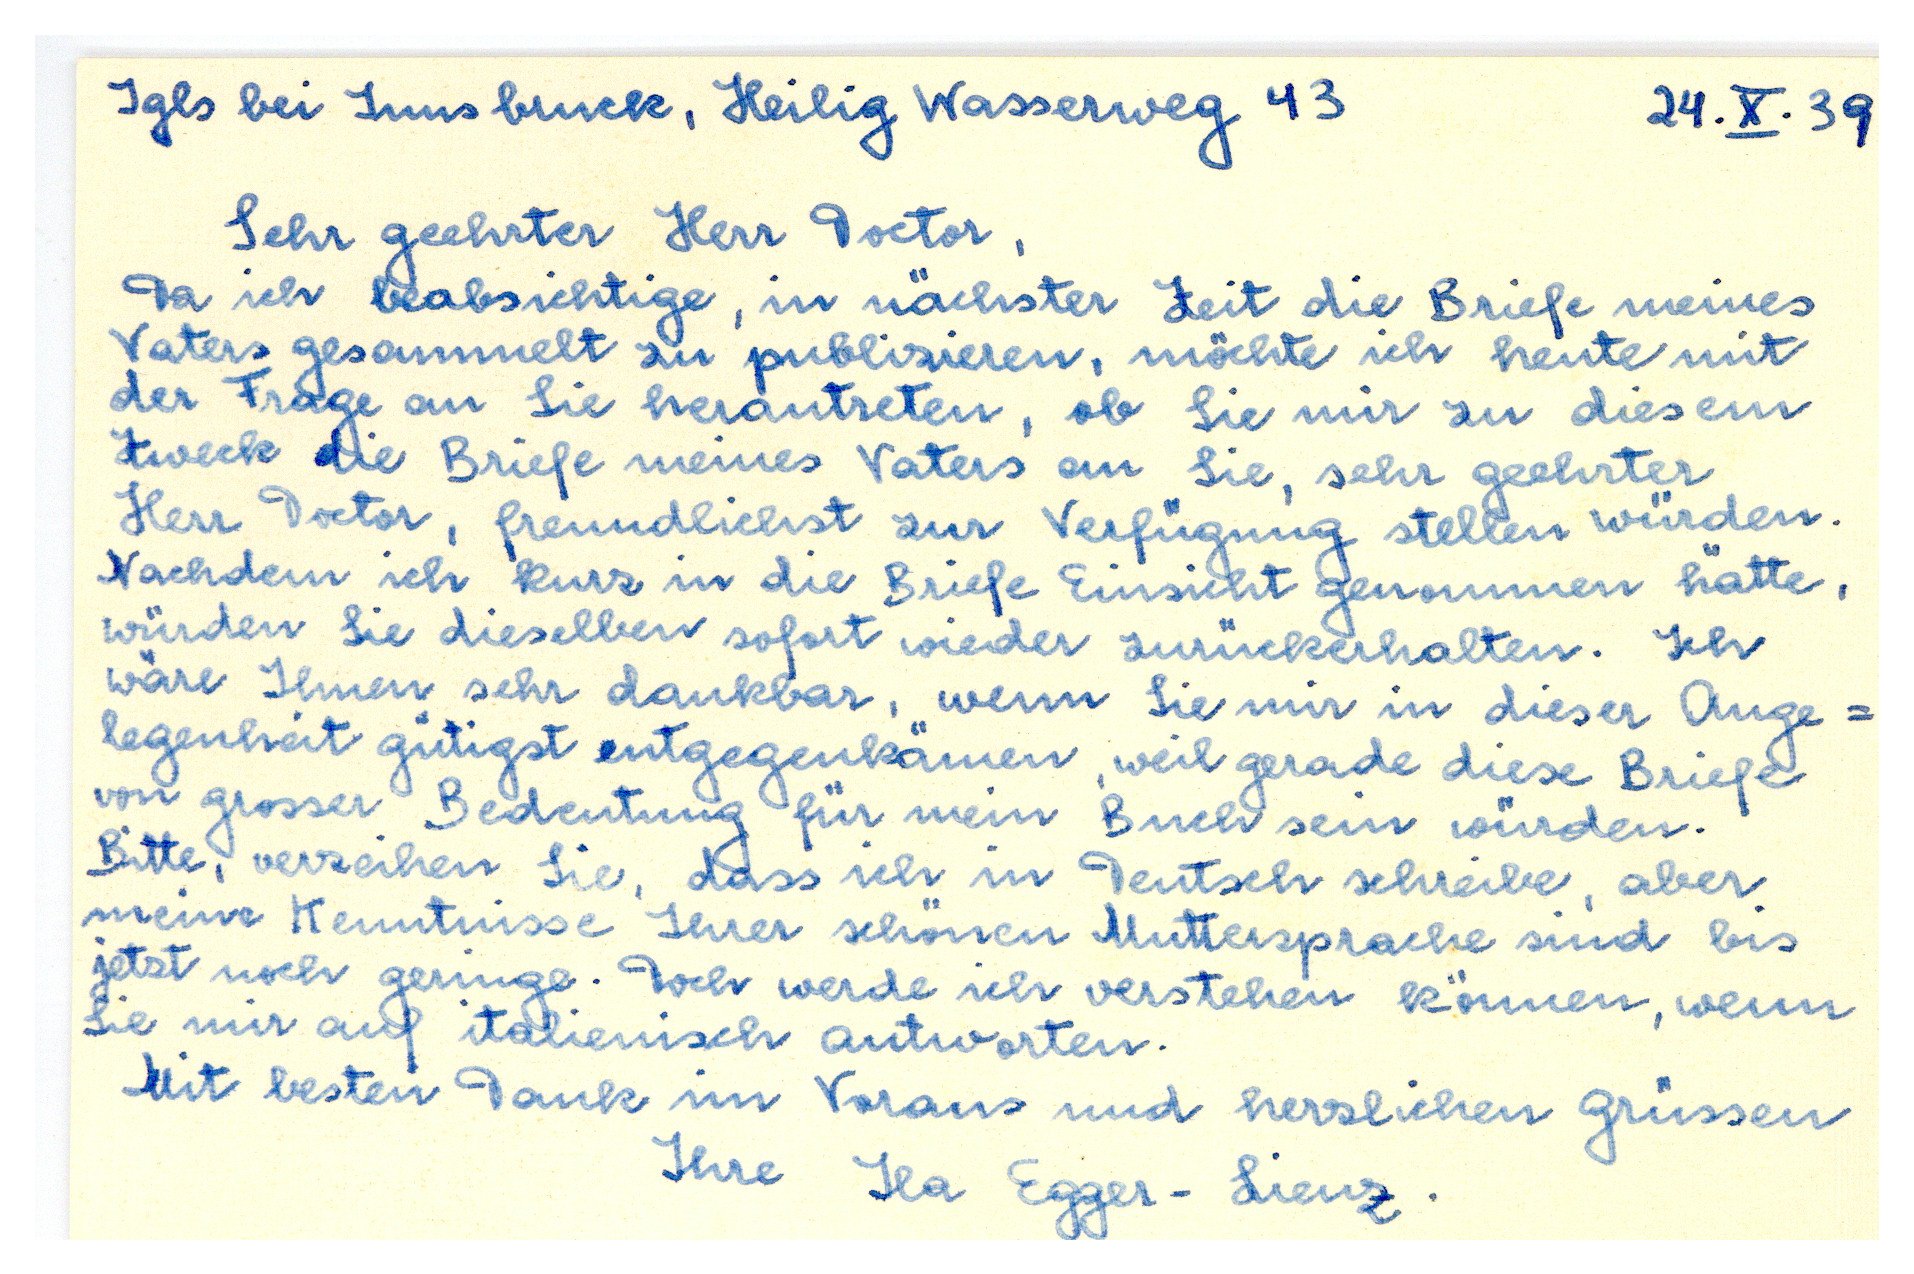 Igls bei Innsbruck, Heilig Wasserweg 43 24.X.39
Sehr geehrter Herr Doctor,
Da ich beabsichtige, in nächster Zeit die Briefe meines
Vaters gesammelt zu publizieren, möchte ich heute mit
der Frage an Sie herantreten, ob Sie mir zu diesem
Zweck die Briefe meines Vaters an Sie, sehr geehrter
Herr Doctor, freundlichst zur Verfügung stellen würden.
Nachdem ich kurz in die Briefe Einsicht genommen hätte,
würden Sie dieselben sofort wieder zurückerhalten. Ich
wäre Ihnen sehr dankbar, wenn Sie mir in dieser Ange=
legenheit gütigst entgegenkämen, weil gerade diese Briefe
von grosser Bedeutung für mein Buch sein würden.
Bitte, verzeihen Sie, dass ich in Deutsch schreibe, aber
meine Kenntnisse Ihrer schönen Muttersprache sind bis
jetzt noch geringe. Doch werde ich verstehen können, wenn
Sie mir auf italienisch antworten.
Mit besten Dank im Voraus und herzlichen Grüssen
Ihre Ila Egger-Lienz.